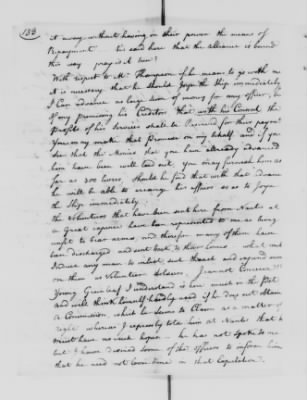 138
it away without having in their power the means of
Repayment his said here that the alliance is bound
this way pray is it true?
With respect to Mr Thompson if he means to go with me
it is necessary that he should Joyn the Ship immediately
I Can advance no large Sum of money for any officer, but
if any promising his Creditor that with his Consent the
profits of his Services shall be Reserved for their payment
You may make that promise on my behalf and if you
see that the Monies that you have already advanced
him have been well laid out, you may furnish him as
far as 300 livres. Should he find that with that advance
he will be able to arrange his affairs so as to Joyn
the Ship immediately
the Volunteers that have been sent here from Nantes at
a Great expence have been represented to me as being
unfit to bear arms, and therefore many of them have
been discharged and sent back to their homes what could
induce any man to inlist such trash and expend money
on them as Volunteer Soldiers, I cannot Conceive
Young Greenleaf I understand is here much in the Pet
and will think himself hardly used if he does not obtain
a Commission, which he seems to Claim as a matter of
right whereas I expressly told him at Nantes that he
must have no such hopes he has not spoke to me
but I have desired some of the officers to inform him
that he need not lose time on that Expectation.